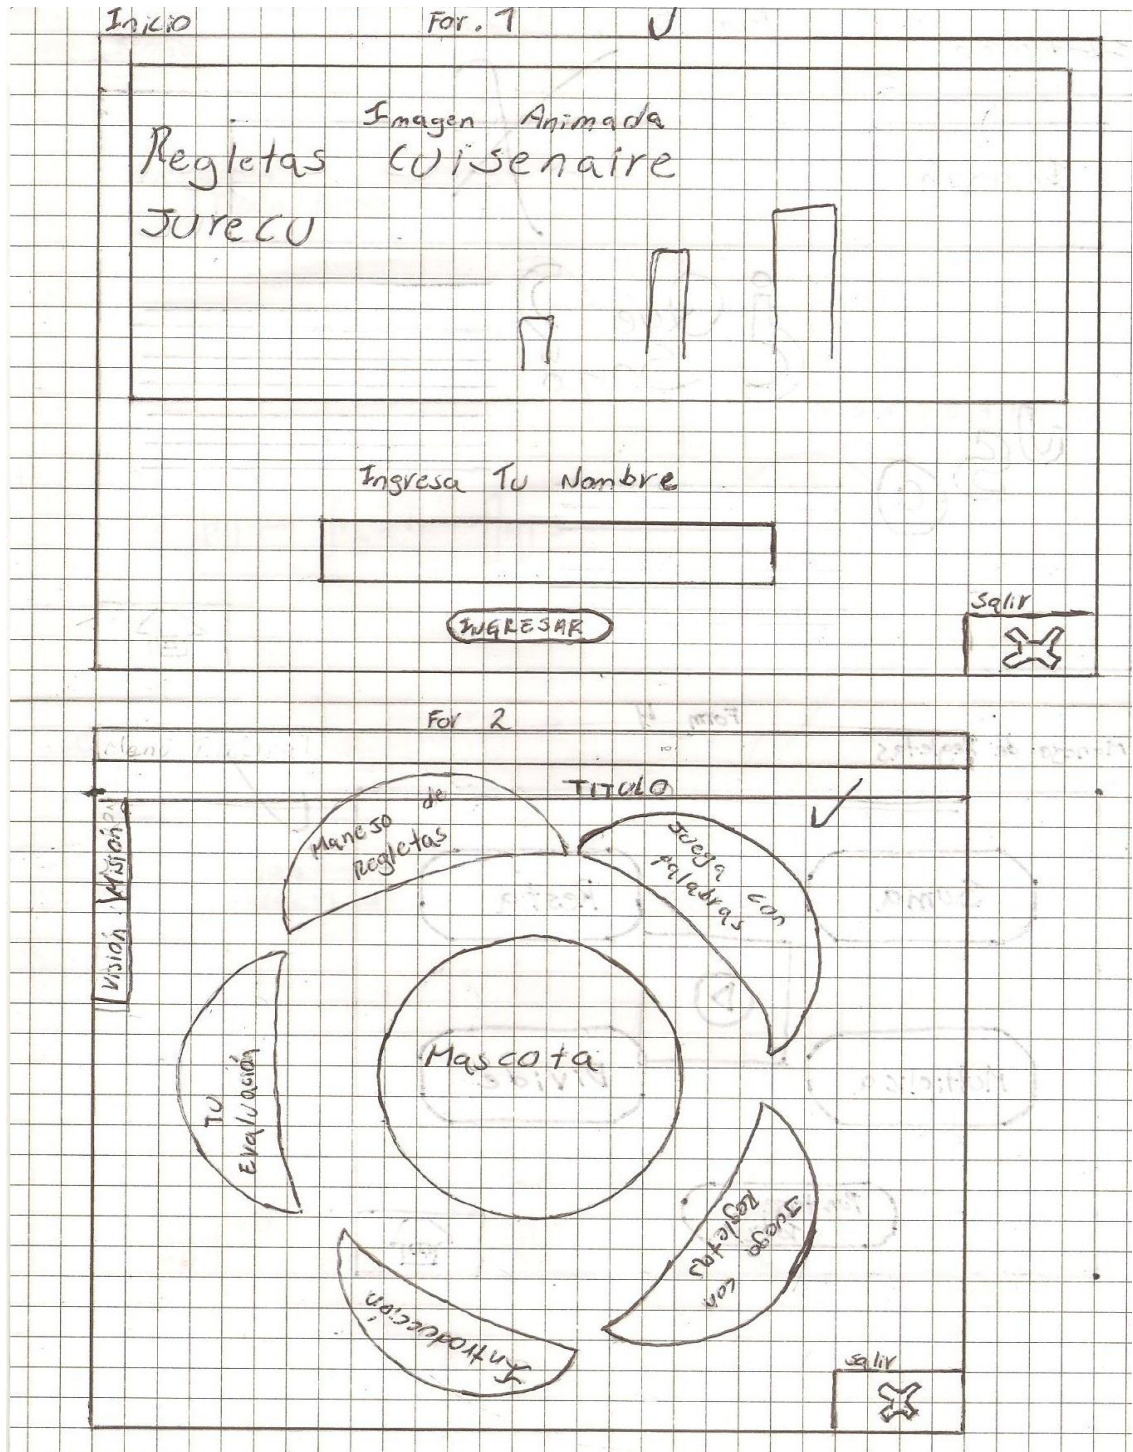 Inicio For. 1
Imagen Animada
Regletas Cuisenaire
Jurecu
Ingresa Tu Nombre
INGRESAR
Salir
For 2
TITULO
Misión
Visión
Manejo de
Regletas
Juega con
palabras
Mascota
Tu
Evaluación
Juega con
Regletas
Introducción
Salir